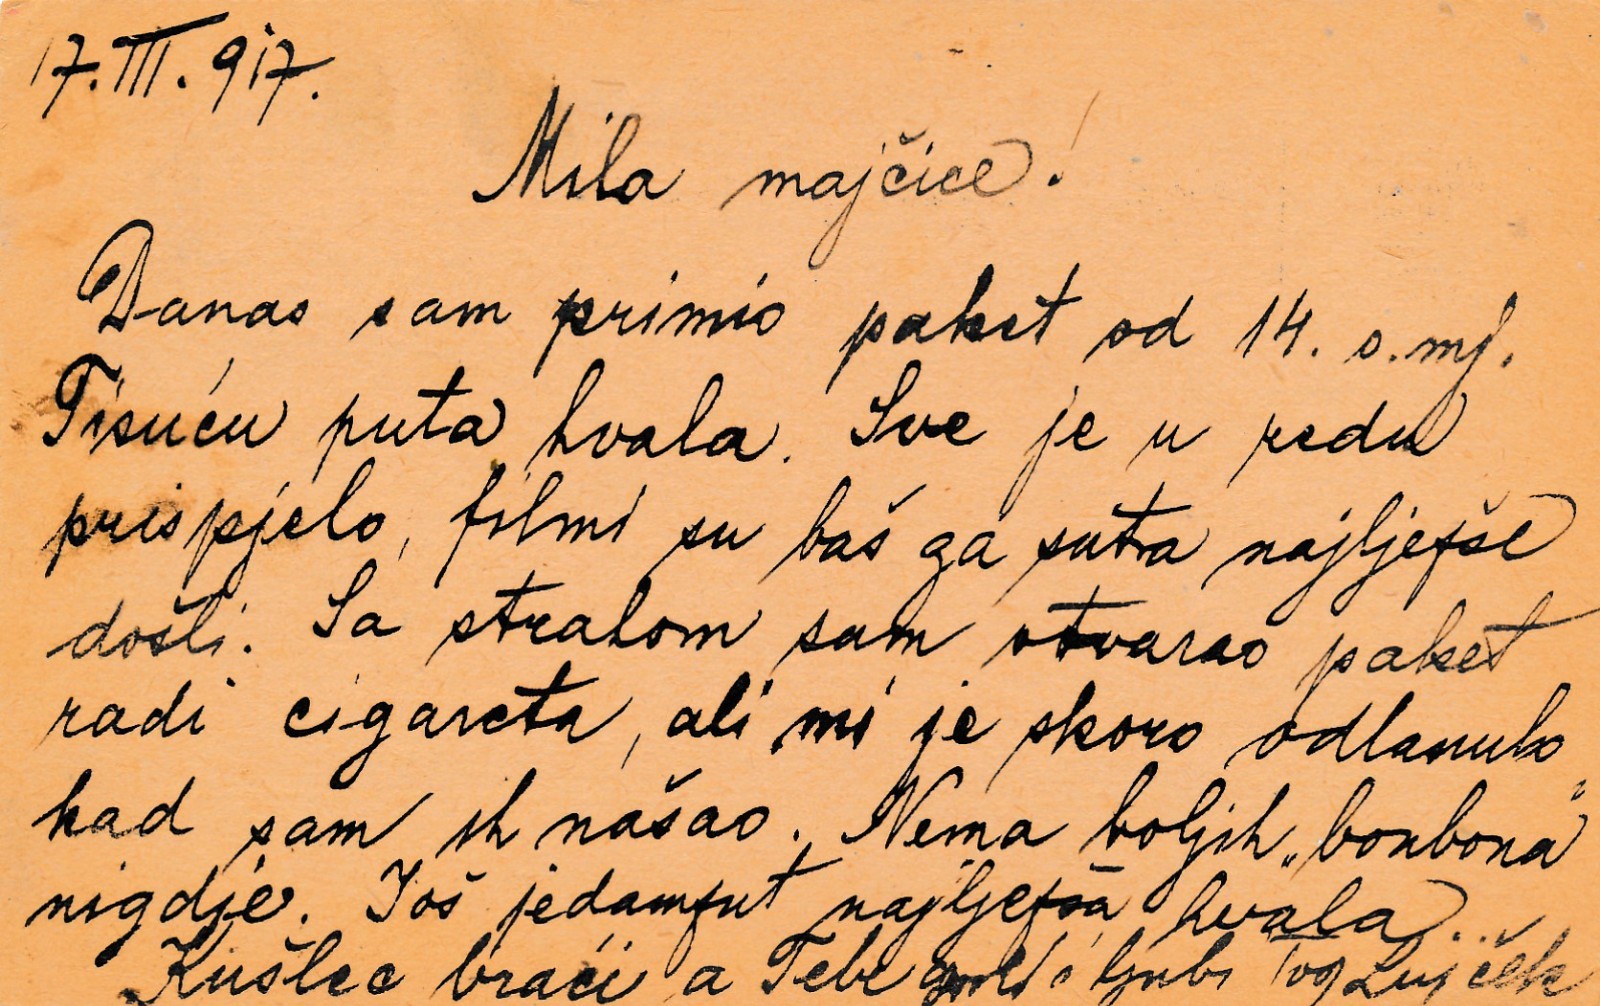 17. III. 917.
Mila majčice!
Danas sam primio paket od 14. o. mj.
Tisuću puta hvala. Sve je u redu
prispjelo, filmi su baš za sutra najljepše
došli. Sa strahom sam otvarao paket
radi cigareta, ali mi je skoro odlanulo
kad sam ih našao. Nema boljih „bonbona"
nigdje. Još jedamput najljepša hvala.
Kušlec braći a Tebe grli i ljubi Tvoj Lujček